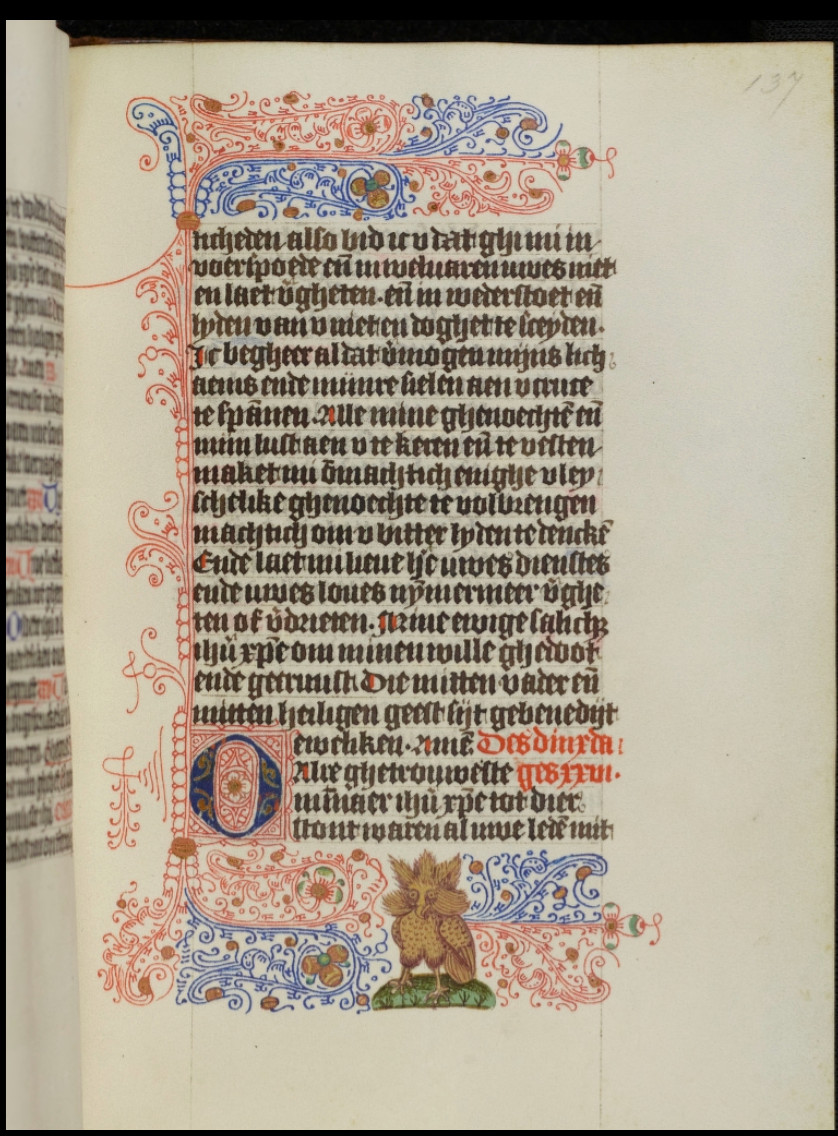 137
ncheden also bid ic v dat ghi mi in
voerspoede eñ in weluaren uwes niet
en laet v̄gheten. eñ in wederstoet eñ
lyden van v niet en doghet te sceyden.
Ic begheer al dat v̄mogen mijns lich
aems ende mijnre sielen aen v cruce
te spānen. Alle mine ghenoechtē eñ
minn lust aen v te keren eñ te vesten
maket mi ōmachtich enighe vley
schelike ghenoechte te volbrengen
machtich om v bitter lyden te denckē
Ende laet mi lieue he uwes dienstes
ende uwes loues nymermeer v̄ghe
ten of v̄drieten. ewige salich
ihū xp̄e om minen wille ghedoot
ende gecruust Die mitten vader eñ
mitten heiligen geest sijt gebenedijt
eweliken. Amē. Des dinxda
O Alre ghetrouweste ges xxiii.
mīnaer ihū xp̄e tot dier
stont waren al uwe ledē mit